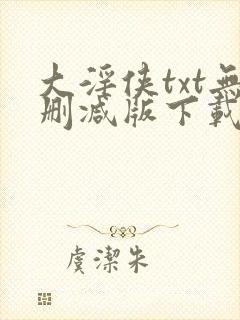 大淫侠txt無
删减版下載
虞潔朱